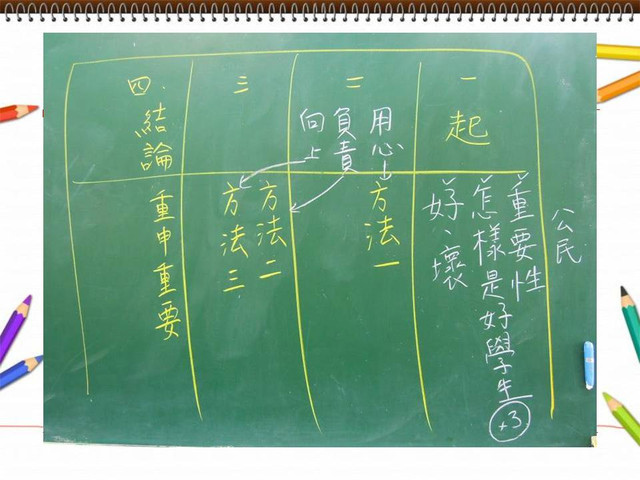 公民
一
起
重要性
怎樣是好學生
+3
好、壞
二
用心
負責
向上
方法一
三
方法二
方法三
四.
結論
重申重要